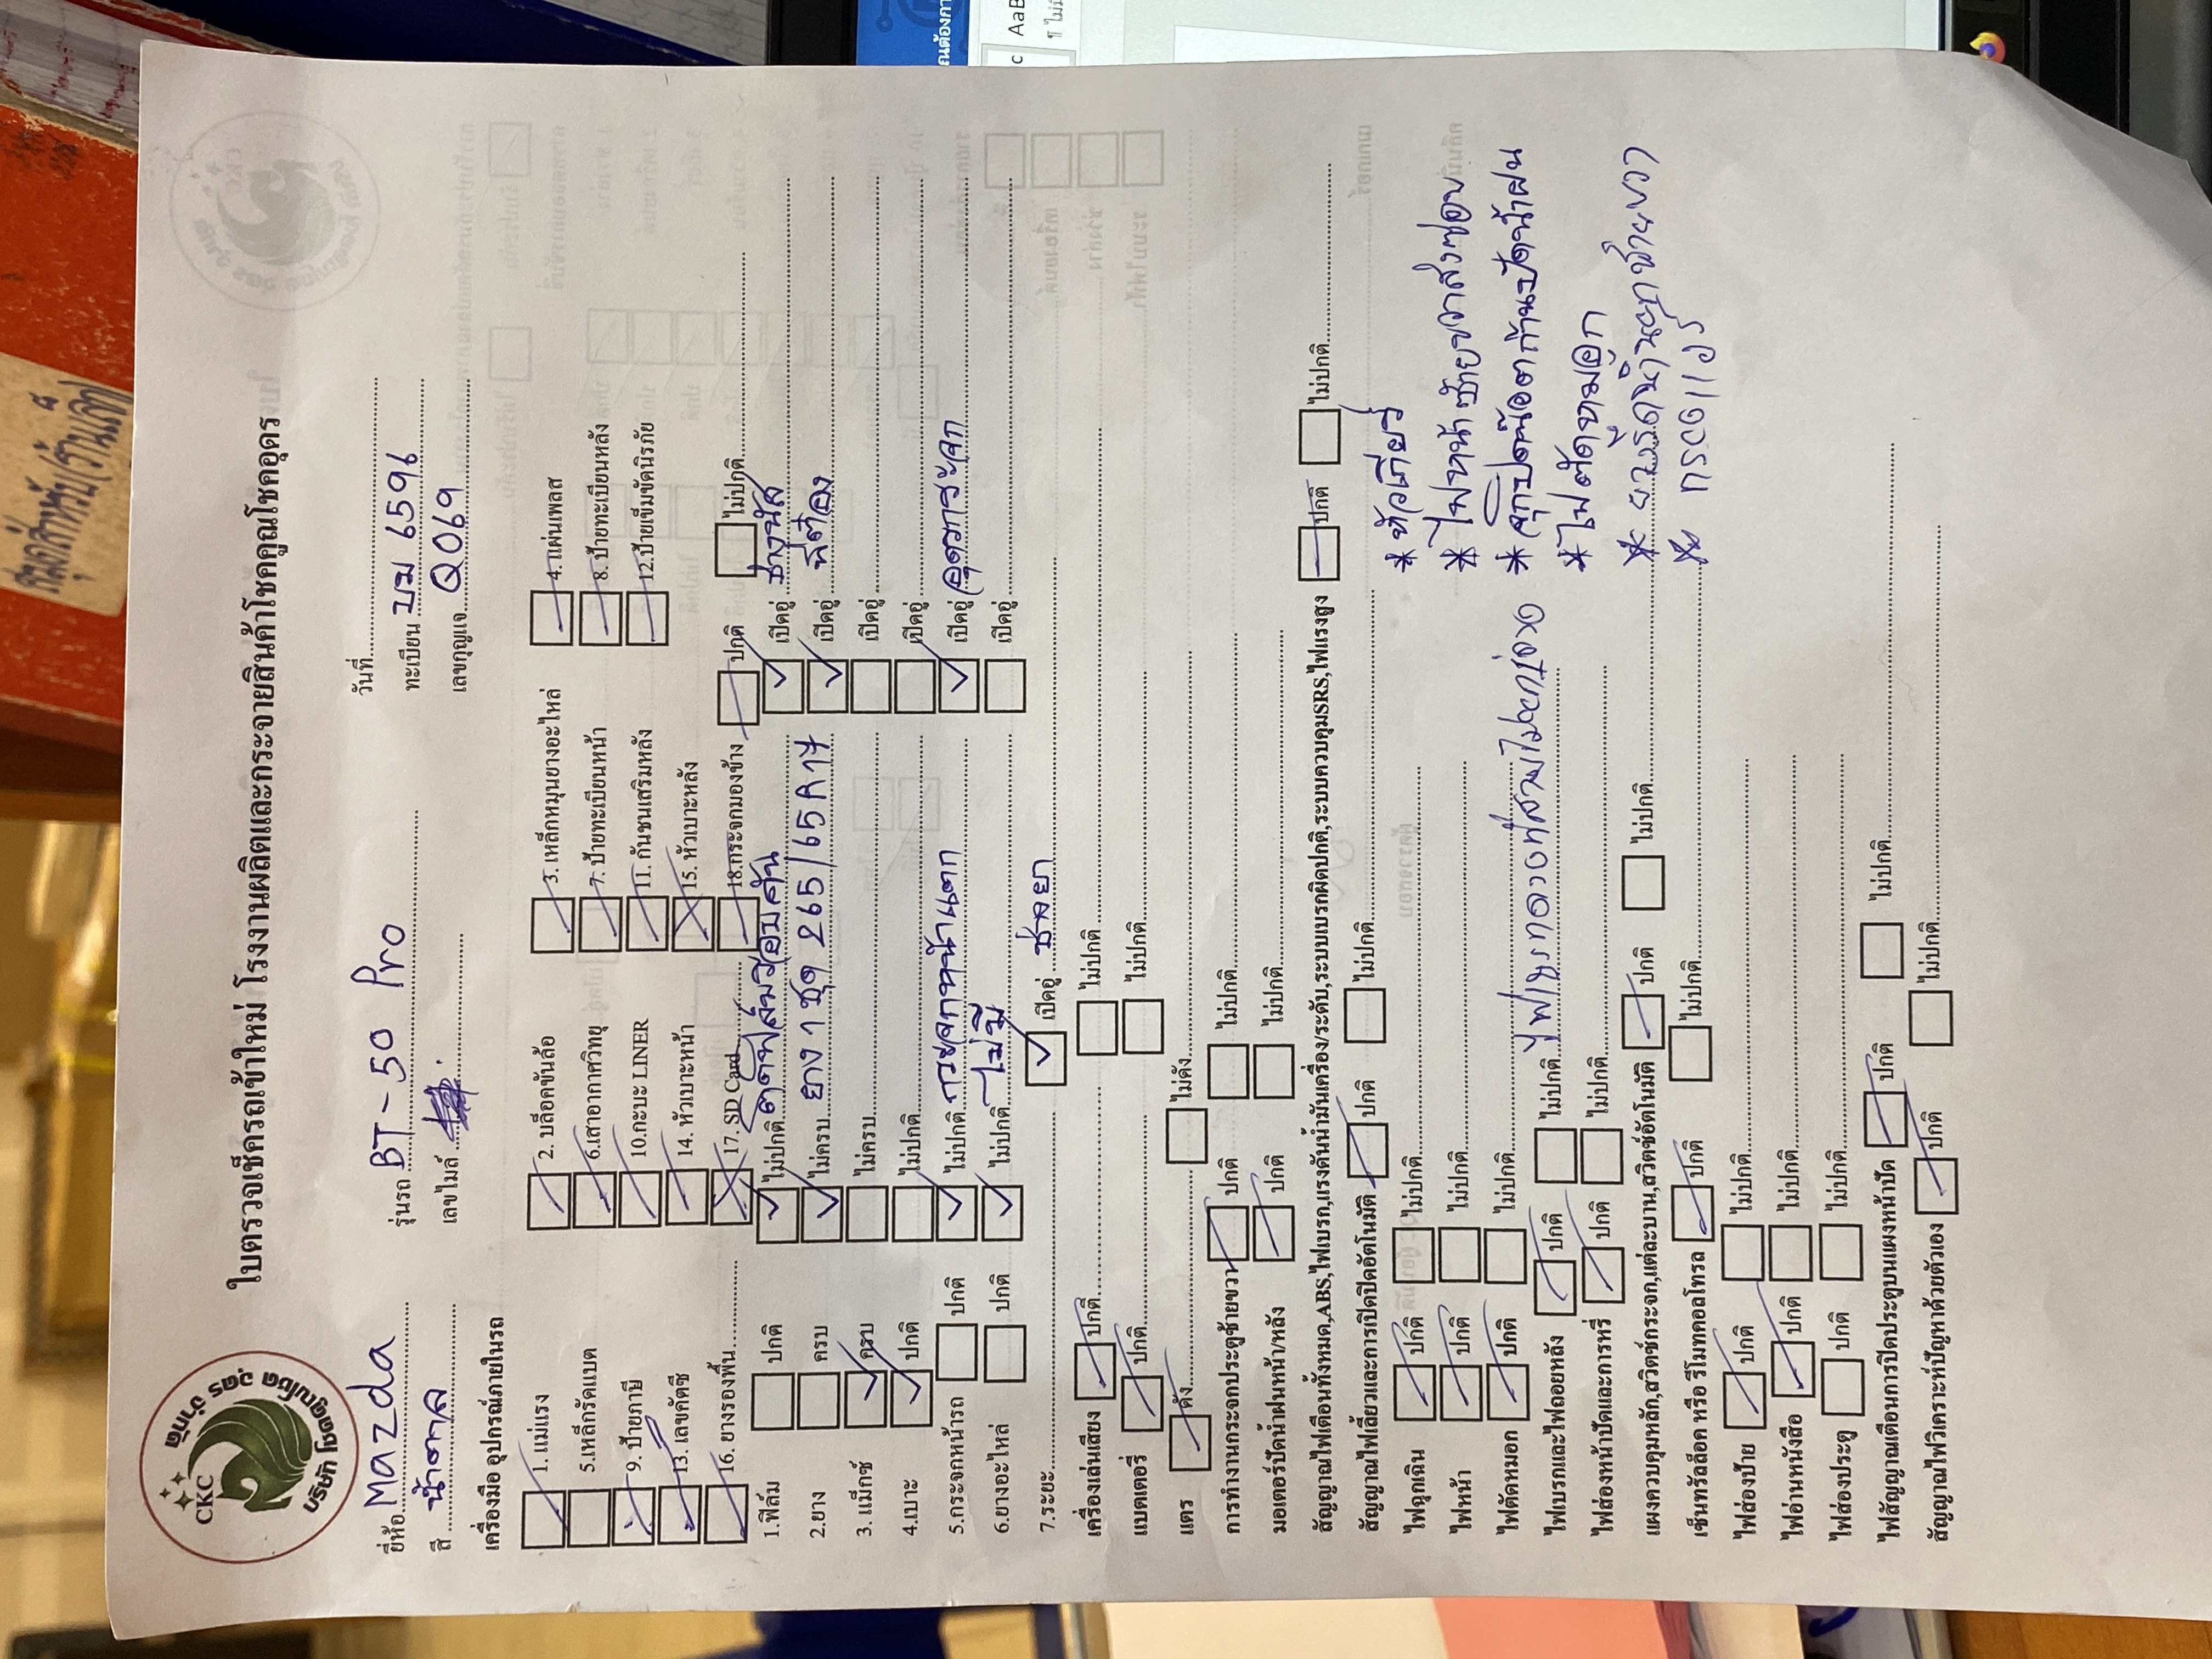 CKC
บริษัท คูณโชค อุดร จำกัด
ใบตรวจเช็ครถเข้าใหม่ โรงงานผลิตและกระจายสินค้าโชคคูณโชคอุดร
ยี่ห้อ Mazda รุ่นรถ BT-50 Pro วันที่
ทะเบียน บม 6596
สี น้ำตาล เลขไมล์ เลขกุญแจ Q069
เครื่องมือ อุปกรณ์ภายในรถ
1. แม่แรง 2. บล็อคขันล้อ 3. เหล็กหมุนยางอะไหล่ 4. แผ่นเพลส
5.เหล็กรัดแบต 6.เสาอากาศวิทยุ 7. ป้ายทะเบียนหน้า 8.ป้ายทะเบียนหลัง
9. ป้ายภาษี 10.กะบะ LINER 11. กันชนเสริมหลัง 12.ป้ายเข็มขัดนิรภัย
13. เลขคัตซี 14. หัวเบาะหน้า 15. หัวเบาะหลัง
16. ยางรองพื้น 17. SD Card 18.กระจกมองข้าง ปกติ ไม่ปกติ
1.ฟิล์ม ปกติ ไม่ปกติ ติดฟิล์มรอบคัน เปิดอู่ ช่างนัส
2.ยาง ครบ ไม่ครบ ยาง 1 ชุด 265/65R17 เปิดอู่
3. แม็กซ์ ครบ ไม่ครบ เปิดอู่
4.เบาะ ปกติ ไม่ปกติ เปิดอู่
5.กระจกหน้ารถ ปกติ ไม่ปกติ กระจกหน้าแตก เปิดอู่ อุดรกระจก
6.ยางอะไหล่ ปกติ ไม่ปกติ ไม่มี เปิดอู่
7.ระยะ เปิดอู่
เครื่องเล่นเสียง ปกติ ไม่ปกติ
แบตเตอรี่ ปกติ ไม่ปกติ
แตร ดัง ไม่ดัง
การทำงานกระจกประตูซ้ายขวา ปกติ ไม่ปกติ
มอเตอร์ปัดน้ำฝนหน้า/หลัง ปกติ ไม่ปกติ
สัญญาณไฟเตือนทั้งหมด,ABS,ไฟเบรก,แรงดันน้ำมันเครื่อง/ระดับ,ระบบเบรกผิดปกติ,ระบบควบคุมSRS,ไฟแรงสูง ปกติ ไม่ปกติ
สัญญาณไฟเลี้ยวและการเปิดปิดอัตโนมัติ ปกติ ไม่ปกติ
ไฟฉุกเฉิน ปกติ ไม่ปกติ * หัวเกียร์
ไฟหน้า ปกติ ไม่ปกติ * ไฟหน้าซ้ายขวาส่งซ่อม
ไฟตัดหมอก ปกติ ไม่ปกติ * จุกปิดน็อตก้านปัดน้ำฝน
ไฟเบรกและไฟถอยหลัง ปกติ ไม่ปกติ ไฟเบรกดวงที่สามไม่สว่าง * ไฟตัดหมอก
ไฟส่องหน้าปัดและการหรี่ ปกติ ไม่ปกติ
แผงควบคุมหลัก,สวิตช์กระจก,แต่ละบาน,สวิตซ์อัตโนมัติ ปกติ ไม่ปกติ
เซ็นทรัลล็อค หรือ รีโมทคอลโทรล ปกติ ไม่ปกติ
ไฟส่องป้าย ปกติ ไม่ปกติ
ไฟอ่านหนังสือ ปกติ ไม่ปกติ
ไฟส่องประตู ปกติ ไม่ปกติ
ไฟสัญญาณเตือนการปิดประตูบนแผงหน้าปัด ปกติ ไม่ปกติ
สัญญาณไฟวิเคราะห์ปัญหาด้วยตัวเอง ปกติ ไม่ปกติ